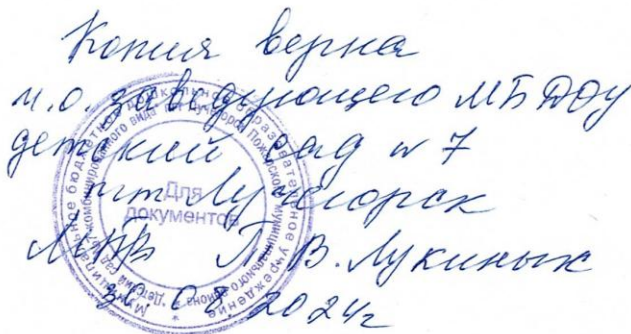 Копия верна
и.о. заведующего МБДОУ
детский сад № 7
пгт Лучегорск
Т.В. Лукинык
2024г
Для
документов